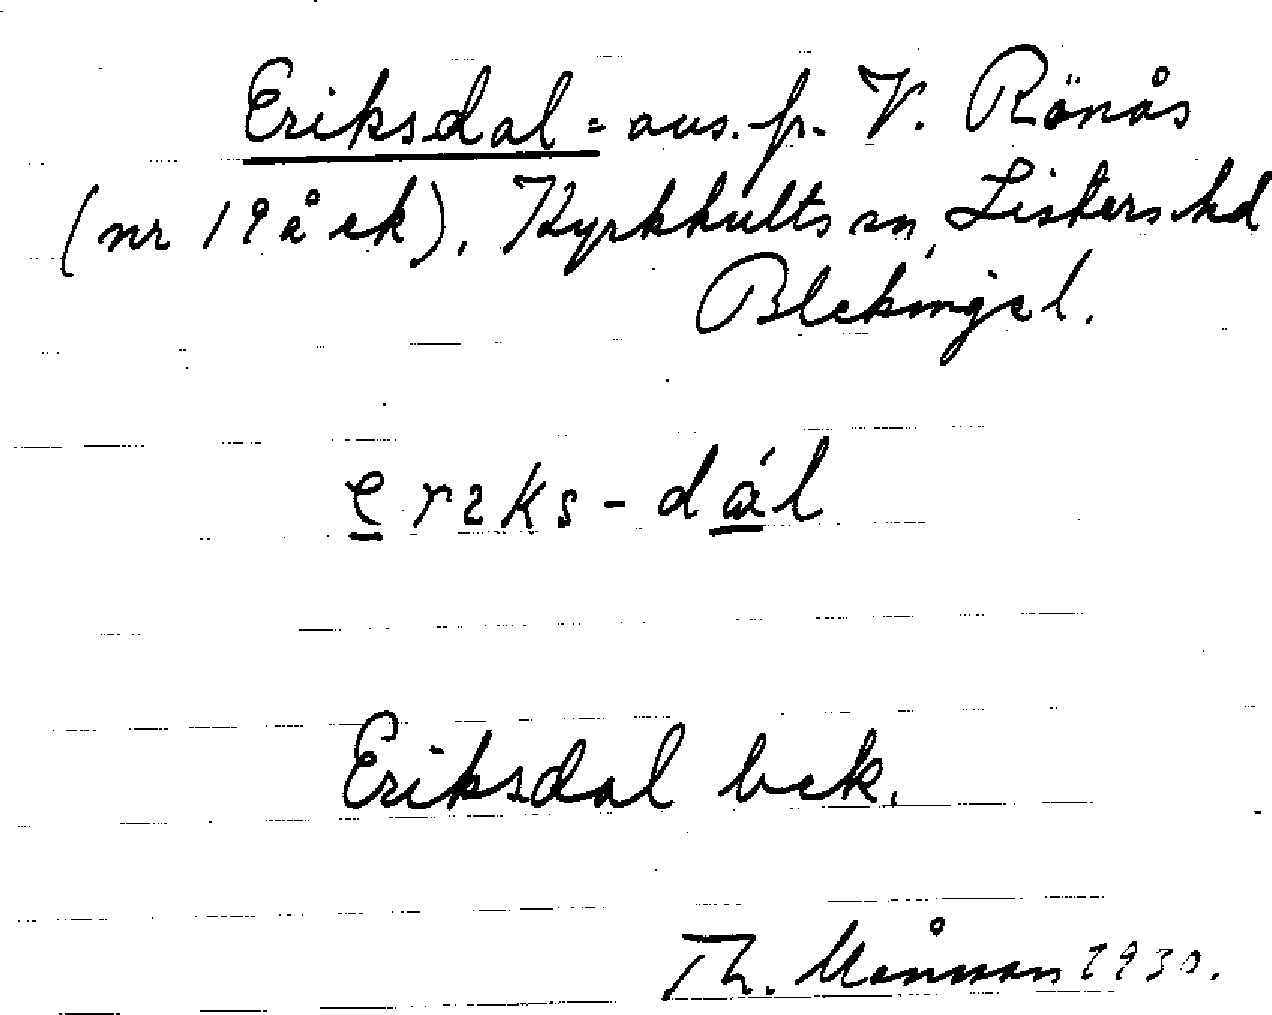 Eriksdal = avs. fr. V. Rönås
(nr 19 å ek), Kyrkhults sn, Listers hd
Blekinge l.
erɩks-dál
Eriksdal bek.
Th. Månsson 1930.